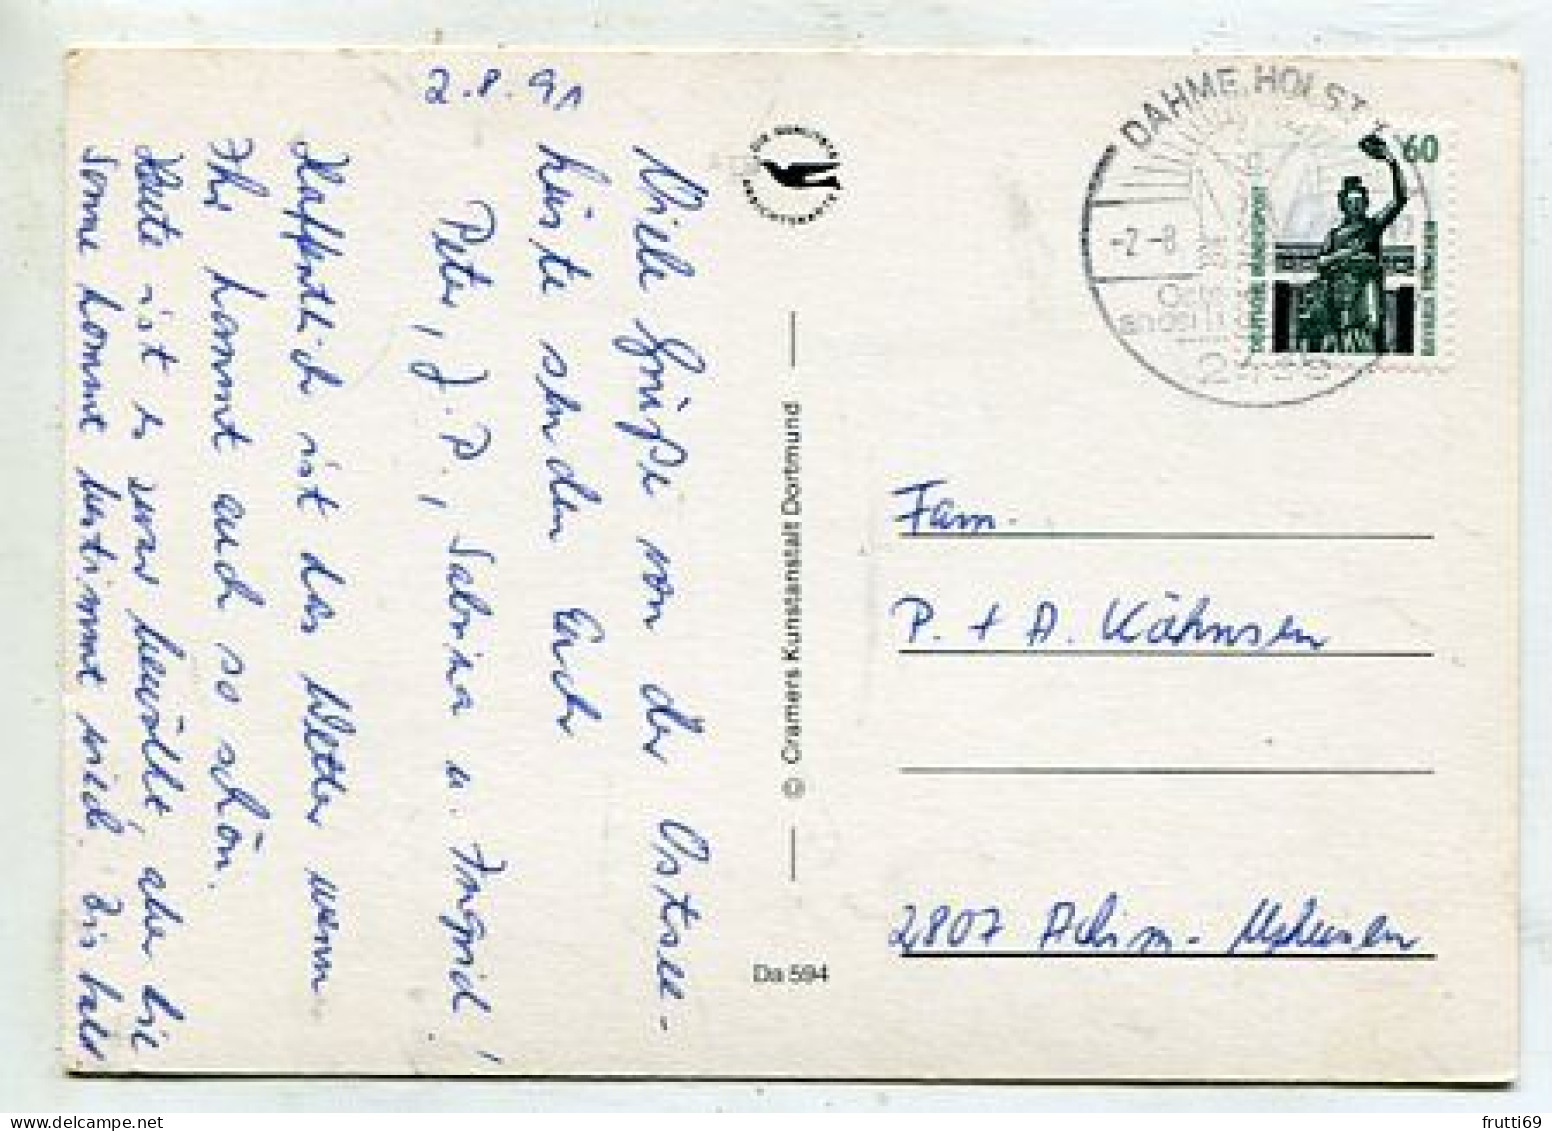 2.8.91
Viele Grüße von der Ostsee-
küste senden Euch
Peter, J.P., Sabrina u. Ingrid!
Hoffentlich ist das Wetter wenn
Ihr kommt auch so schön.
Heute ist es zwar bewölkt, aber die
Sonne kommt bestimmt wied. Bis bald.
DIE QUALITÄTS
ANSICHTSKARTE
© Cramers Kunstanstalt Dortmund
Da 594
DAHME, HOLST
-2.-8
2435
60
DEUTSCHE BUNDESPOST
BAVARIA MÜNCHEN
Fam.
P. + A. Kähnsen
2807 Achim-Uphusen
frutti69